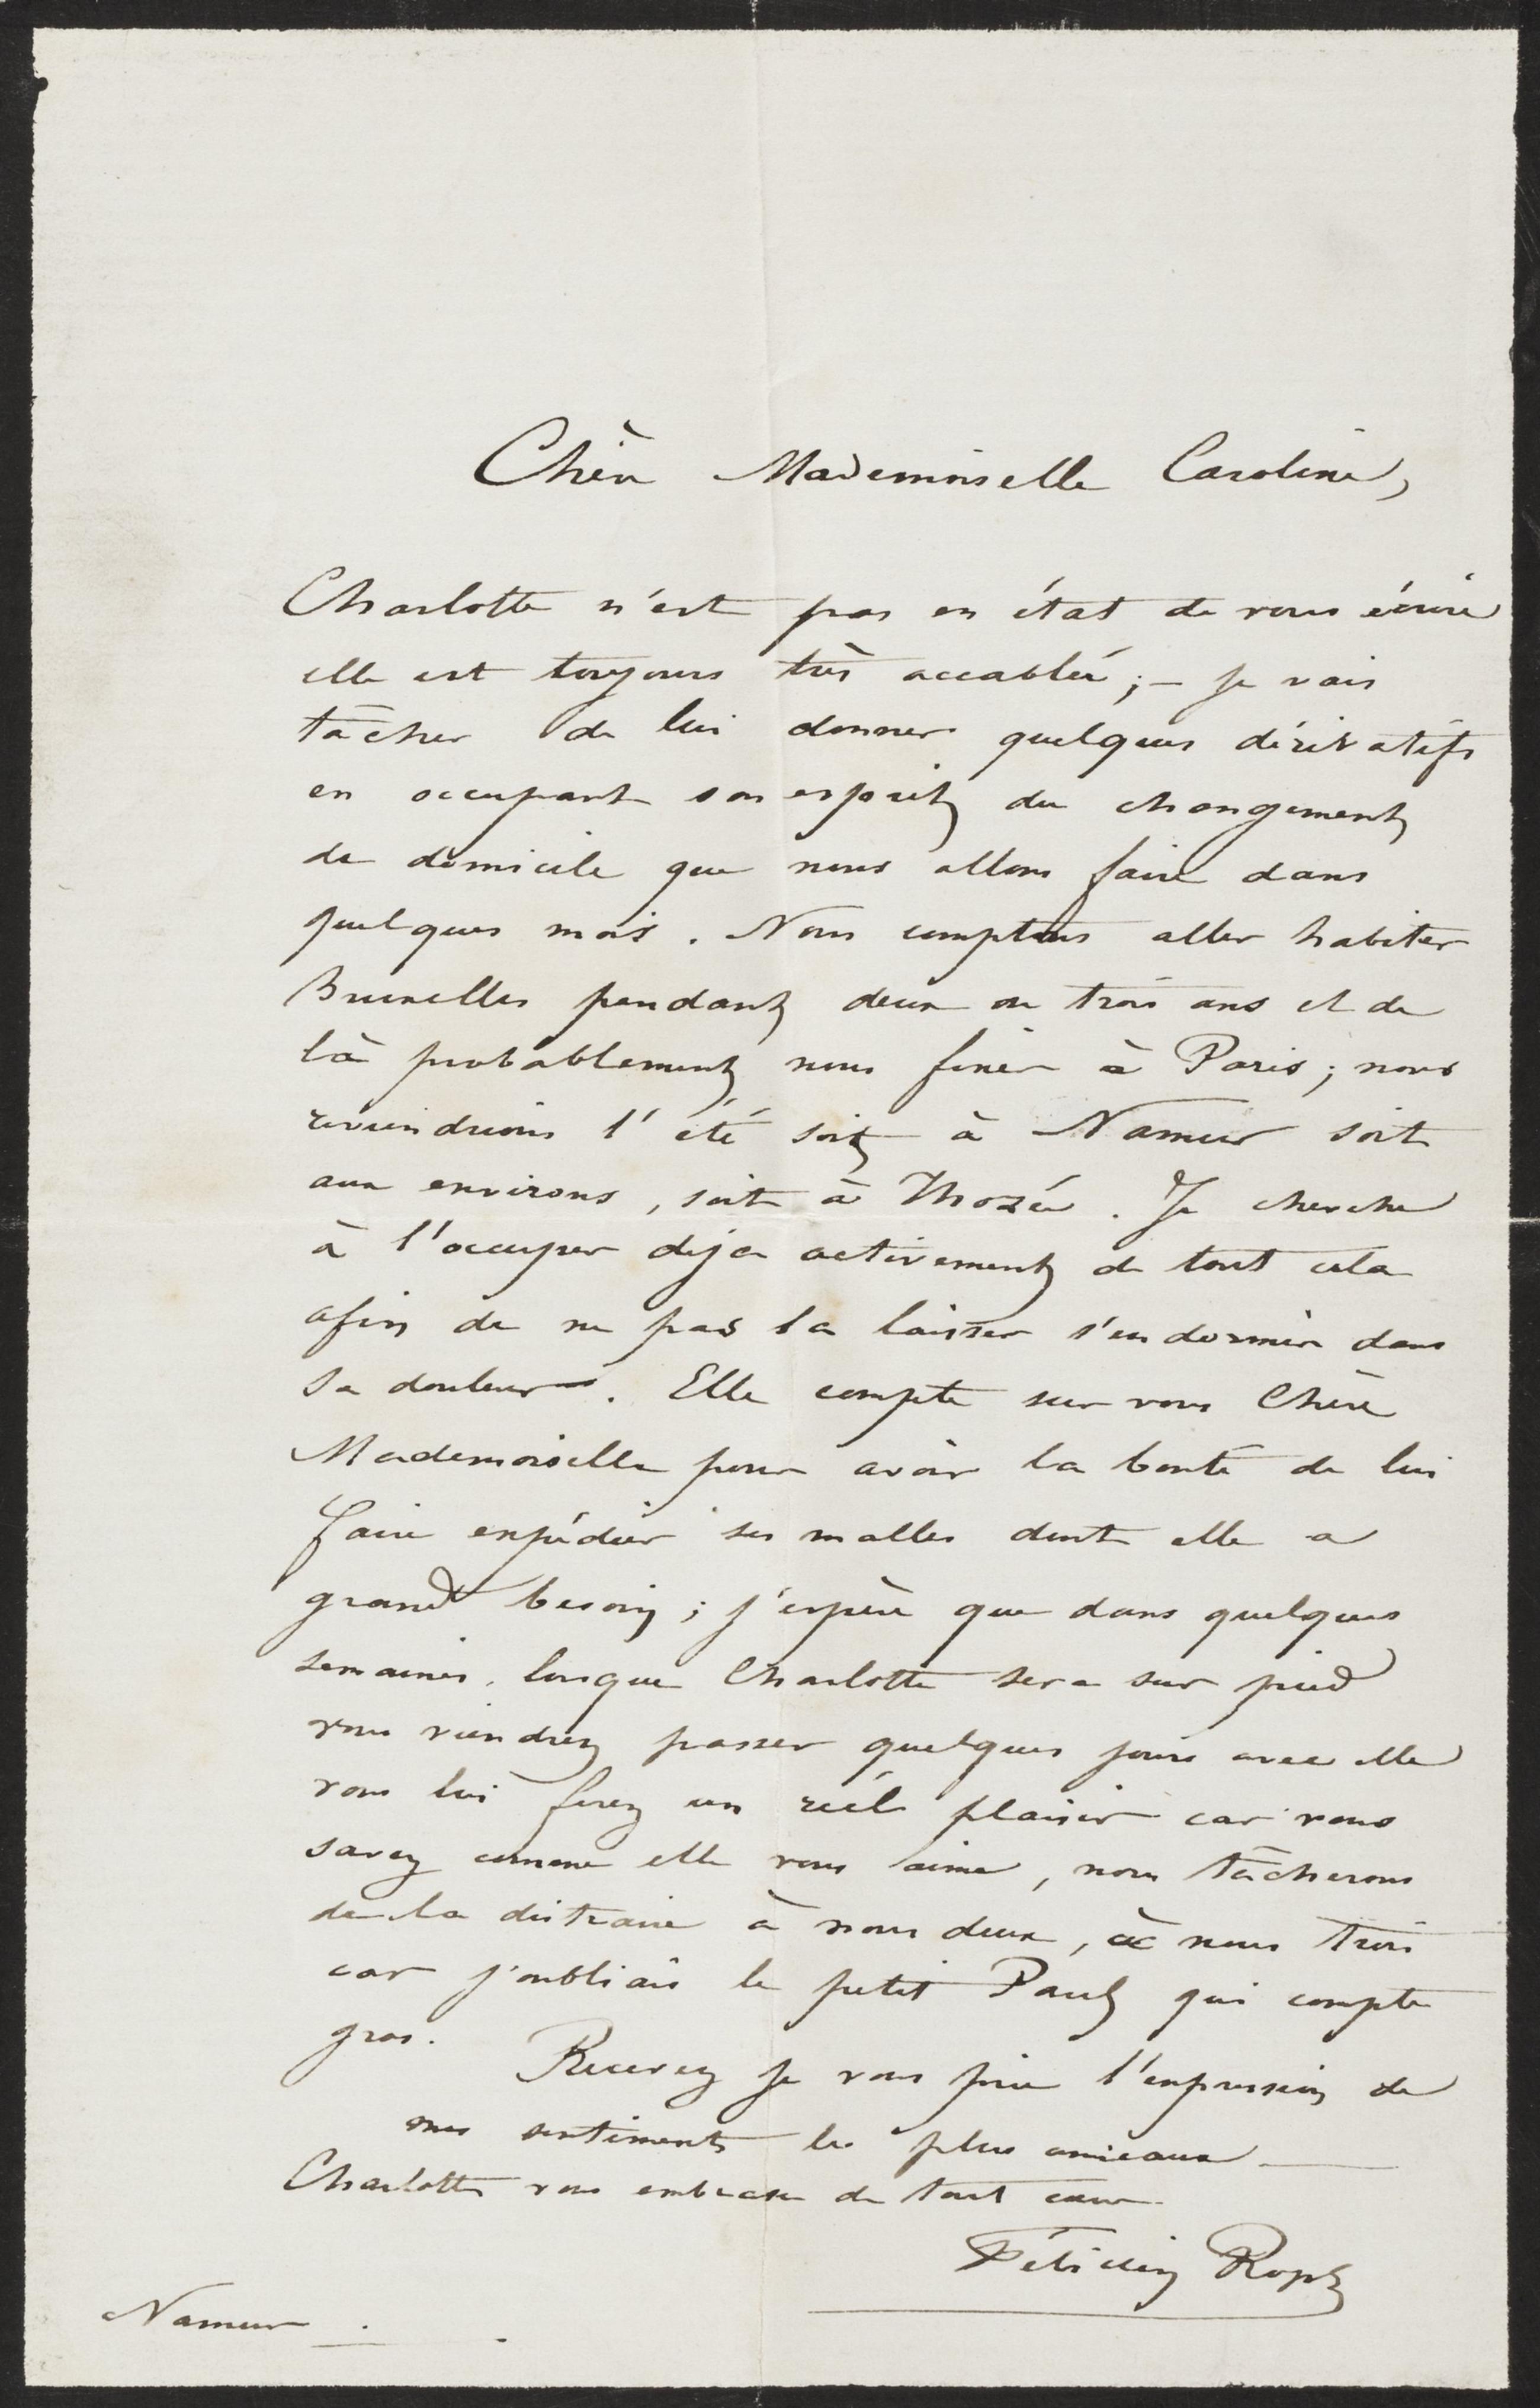 Chère Mademoiselle Caroline,
Charlotte n'est pas en état de vous écrire
elle est toujours très accablée ; – je vais
tâcher de lui donner quelques dérivatifs
en occupant son esprit du changement
de domicile que nous allons faire dans
quelques mois. Nous comptons aller habiter
Bruxelles pendant deux ou trois ans et de
là probablement nous fixer à Paris ; nous
reviendrions l'été soit à Namur soit
aux environs, soit à Thozée. Je cherche
à l'occuper deja activement de tout cela
afin de ne pas la laisser s'endormir dans
sa douleur. Elle compte sur vous Chère
Mademoiselle pour avoir la bonté de lui
faire expédier ses malles dont elle a
grand besoin ; j'espère que dans quelques
semaines, lorsque Charlotte sera sur pied
vous viendrez passer quelques jours avec elle
vous lui ferez un réel plaisir car vous
savez comme elle vous aime, nous tâcherons
de la distraire à nous deux, à nous trois
car j'oubliais le petit Paul qui compte
gros.
Recevez je vous prie l'expression de
mes sentiments les plus amicaux —
Charlotte vous embrasse de tout cœur
Félicien Rops
Namur .